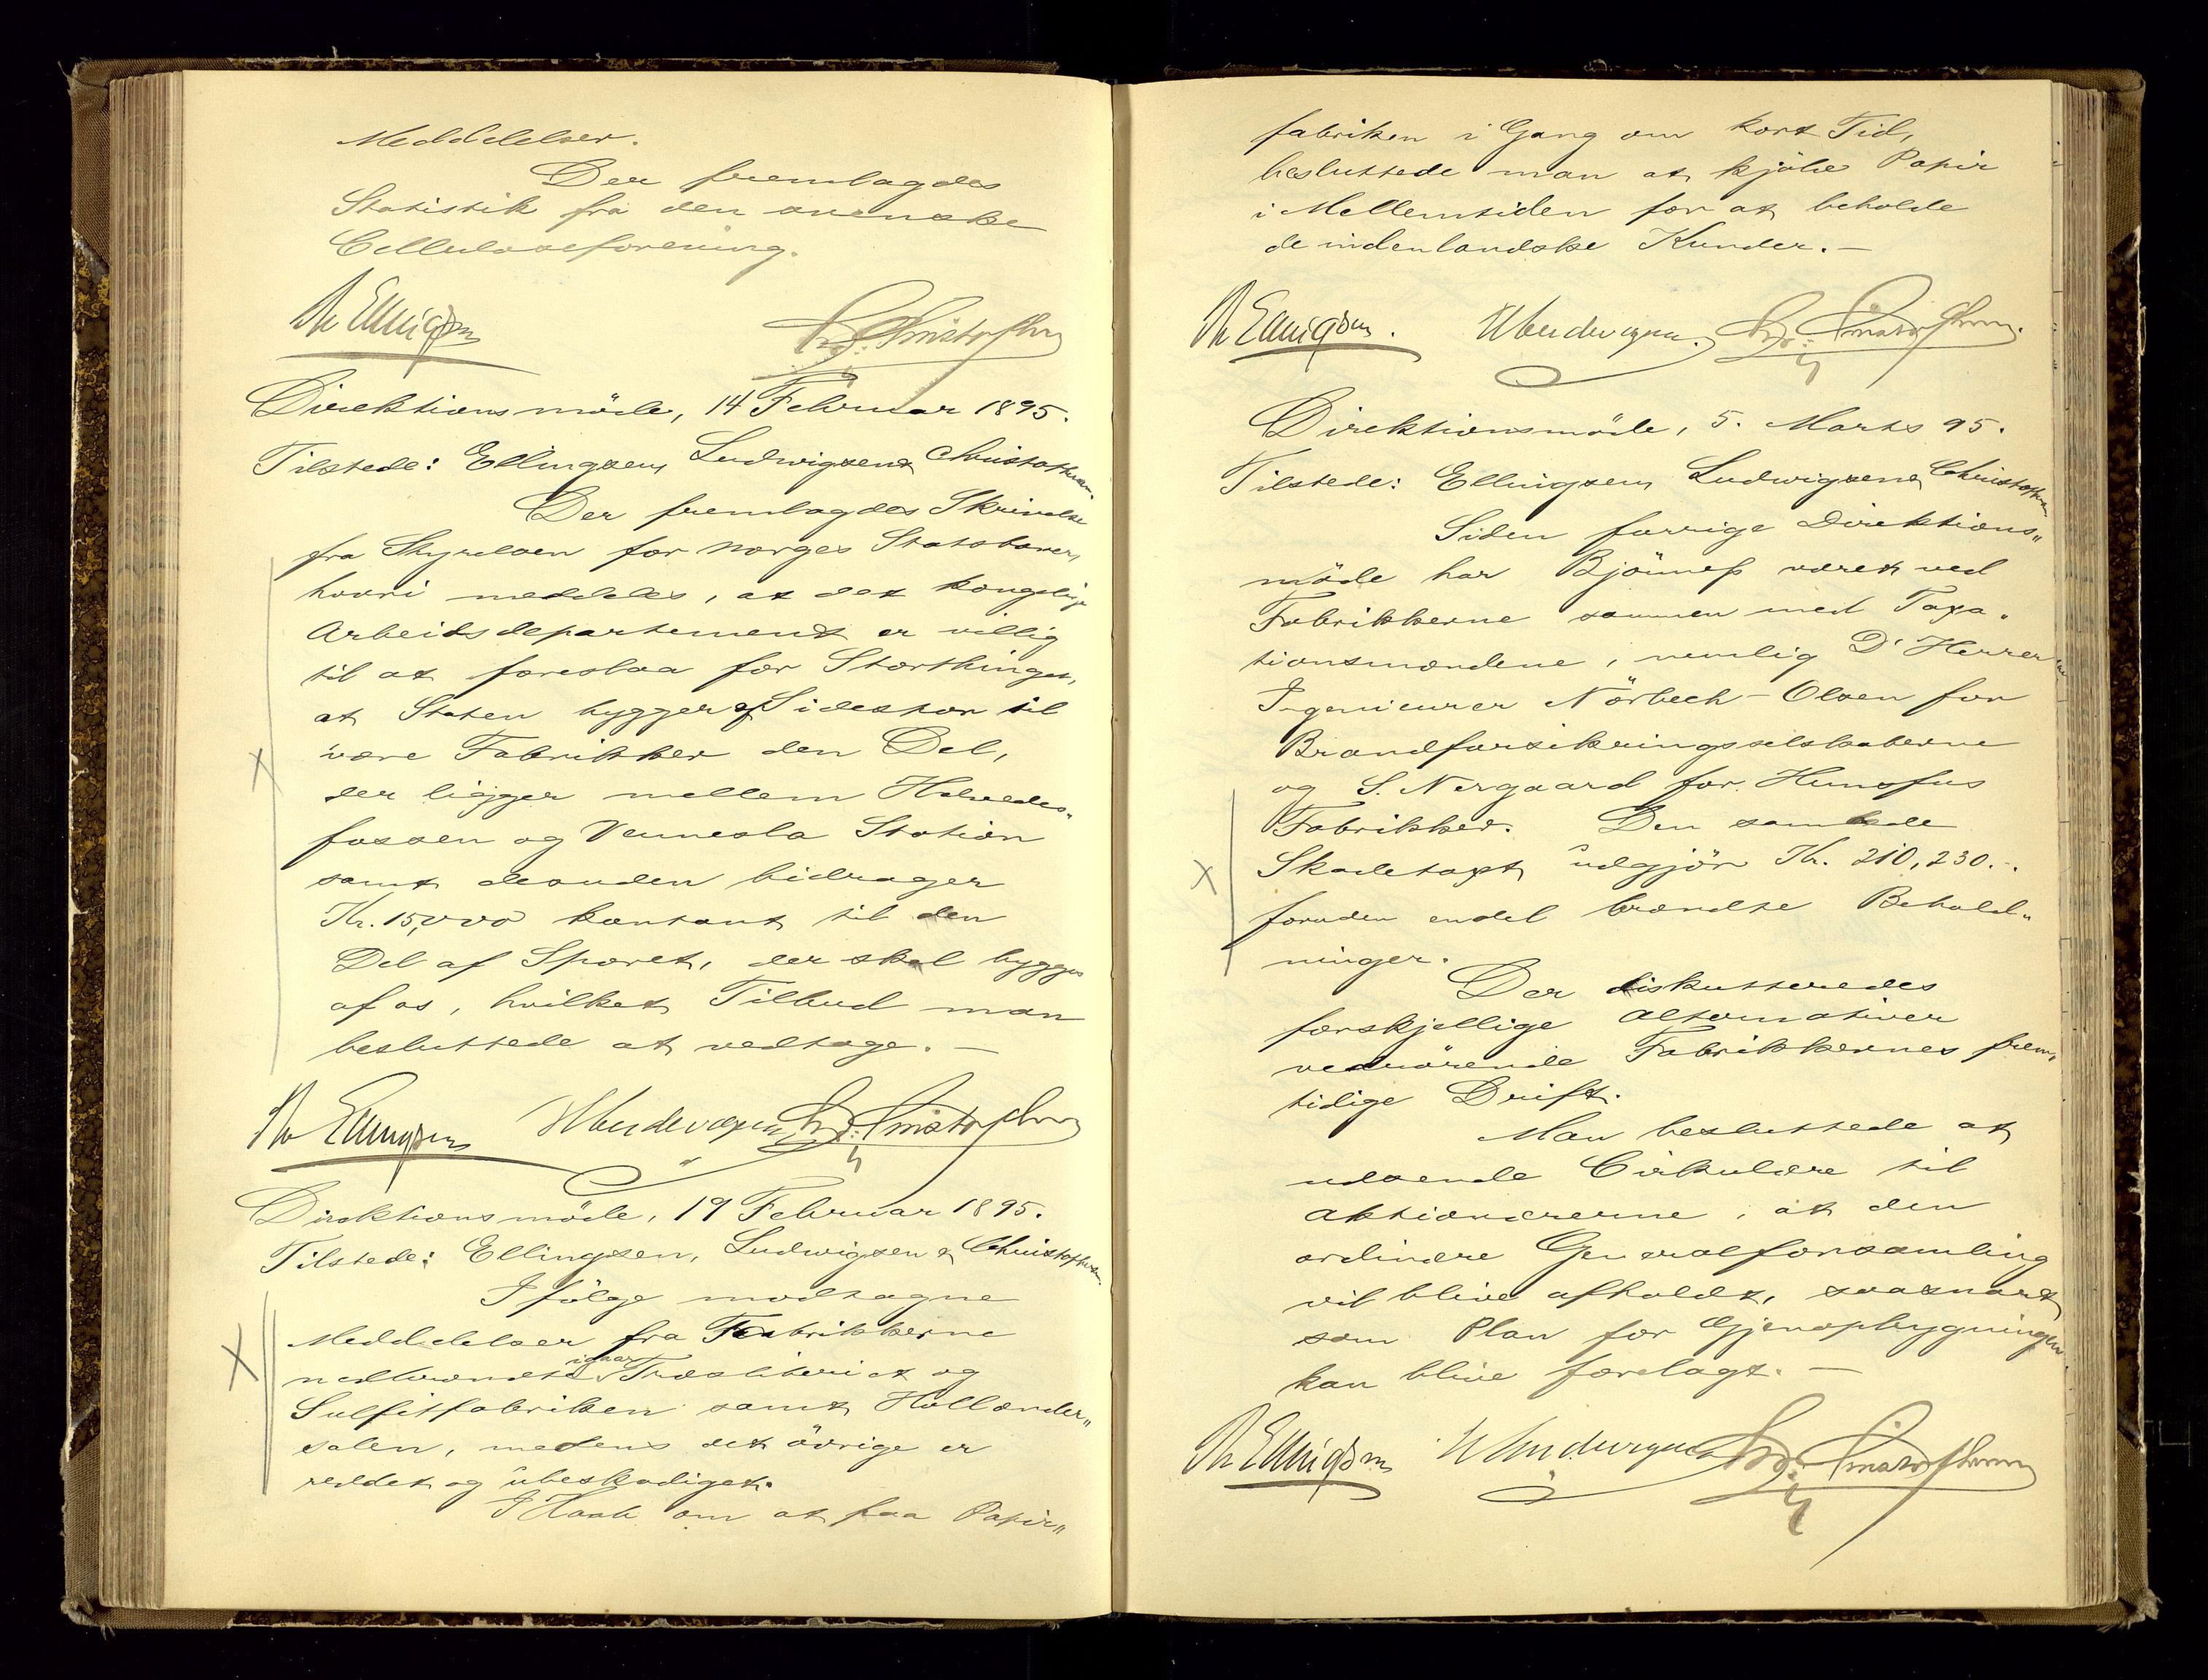 Meddelelser.
Der fremlagdes
Statistik fra den svenske
Celluloseforening.
Th Ellingsen Chr. Christophersen
Direktionsmöde, 14 Februar 1895.
Tilstede: Ellingsen, Ludwigsen & Christophersen.
Der fremlagdes Skrivelse
fra Styrelsen for Norges Statsbaner,
hvori meddeles, at det kongelige
Arbeidsdepartement er villig
til at foreslaa for Storthinget,
at Staten bygger af Sidespor til
vore Fabrikker den Del,
der ligger mellem Helvedes„
fossen og Vennesla Station
samt desuden bidrager
Kr. 15,000 kontant til den
Del af Sporet, der skal bygges
af os, hvilket Tilbud man
besluttede at vedtage. —
Th Ellingsen Ludwigsen Chr. Christophersen
Direktionsmöde, 19 Februar 1895.
Tilstede: Ellingsen, Ludwigsen & Christophersen.
Ifölge modtagne
Meddelelser fra Fabrikkerne
nedbrændte igaar Træsliberiet og
Sulfitfabriken samt Hollænder„
salen, medens det övrige er
reddet og ubeskadiget.
I Haab om at faa Papir„
fabriken i Gang om kort Tid,
besluttede man at kjöbe Papir
i Mellemtiden for at beholde
de indenlandske Kunder. —
Th Ellingsen. Ludwigsen. Chr. Christophersen.
Direktionsmöde, 5. Marts 95.
Tilstede: Ellingsen, Ludwigsen & Christophersen
Siden forrige Direktions„
möde har Bjönness været ved
Fabrikkerne sammen med Taxa„
tionsmændene, nemlig D'Herrer
Ingenieurer Nörbech-Olsen for
Brandforsikringsselskaberne
og S. Nergaard for Hunsfos
Fabrikker. Den samlede
Skadetaxt udgjör Kr. 210,230.-
foruden endel brændte Behold„
ninger.
Der diskutteredes
forskjellige Alternativer
vedrörende Fabrikkernes frem„
tidige Drift.
Man besluttede at
udsende Cirkulære til
Aktionærerne, at den
ordinære Generalforsamling
vil blive afholdt, saasnart
som Plan for Gjenopbygningen
kan blive forelagt. —
Th Ellingsen Ludwigsen Chr. Christophersen